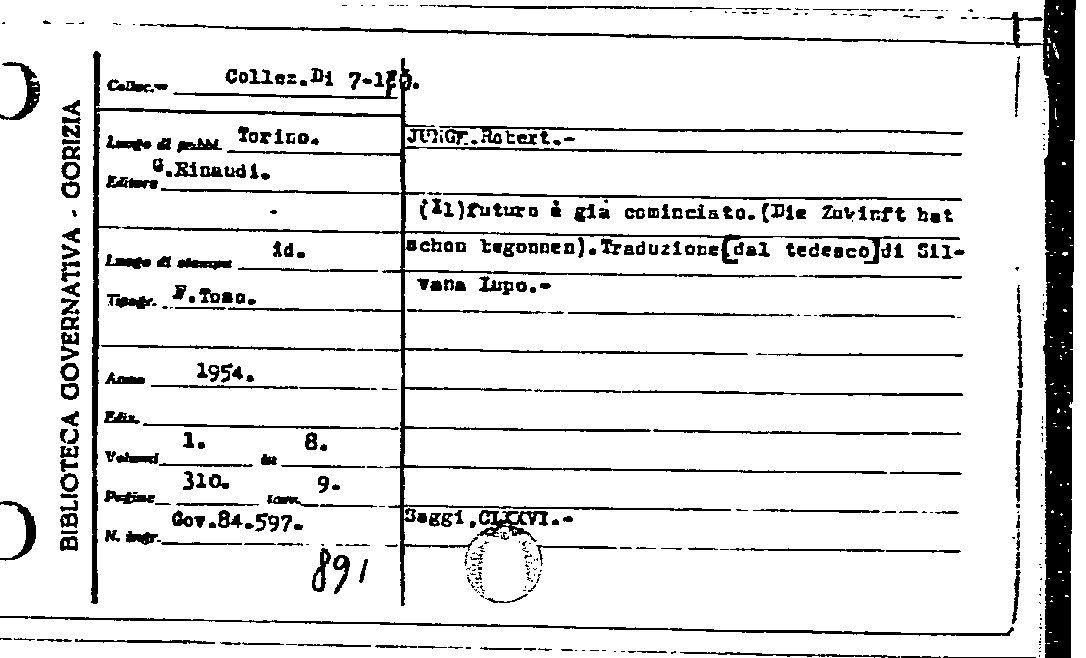 BIBLIOTECA GOVERNATIVA - GORIZIA
Colloc.ne Collez.Di 7-
Luogo di pubbl. Torino.
Editore G.Einaudi.
-
Luogo di stampa id.
Tipogr. F.Toso.
Anno 1954.
Ediz.
Volumi 1. in 8.
Pagine 310. tavv. 9.
N. ingr. Gov.84.597.
891
JUNGK.Robert.-
(Il)futuro è già cominciato.(Die Zukinft hat
schon begonnen).Traduzione[dal tedesco]di Sil-
vana Lupo.-
Saggi,CLXXVI.-